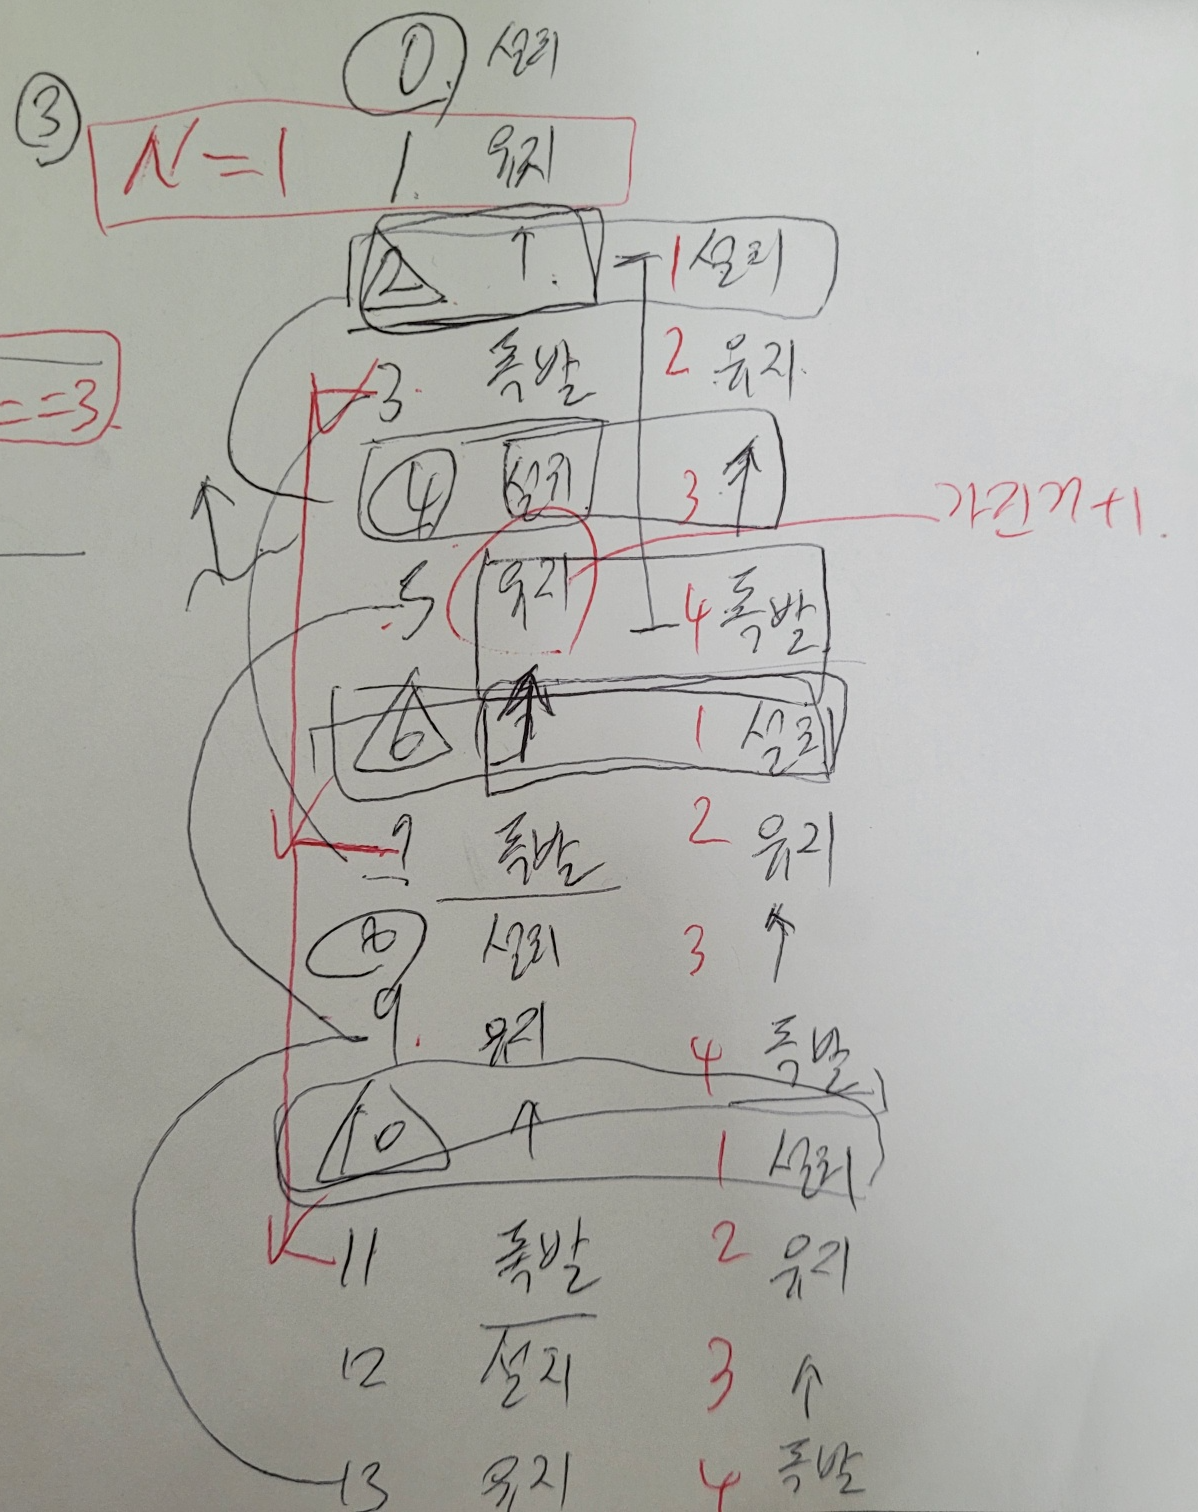 0. 설치
③
N=1 1. 유지
2 ↑ 1 설치
3. 폭발 2 유지
==3
4 설치 3 ↑
5 유지 4 폭발
6 ↑ 1 설치
7 폭발 2 유지
8 설치 3 ↑
9. 유지 4 폭발
10 ↑ 1 설치
11 폭발 2 유지
12 설치 3 ↑
13 유지 4 폭발